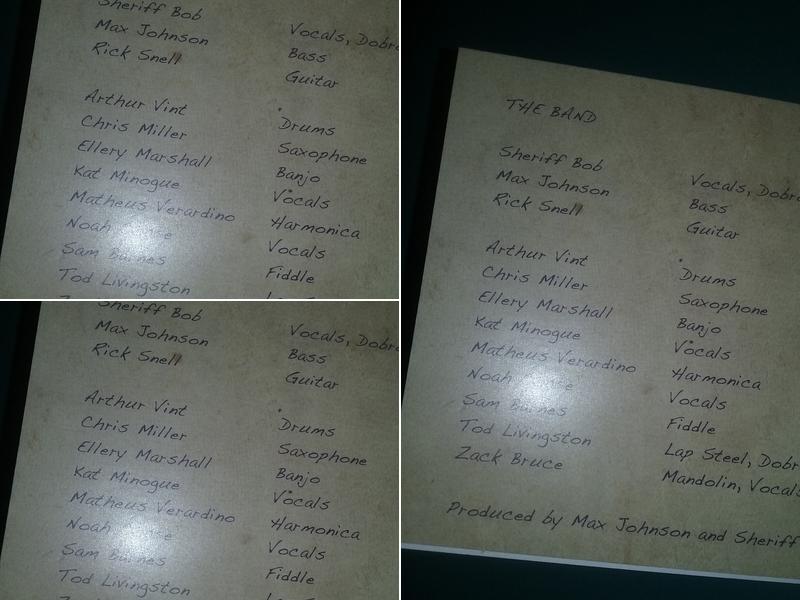 Sheriff Bob Vocals,
Max Johnson Bass
Rick Snell Guitar
Arthur Vint Drums
Chris Miller Saxophone
Ellery Marshall Banjo
Kat Minogue Vocals
Matheus Verardino Harmonica
Noah Vocals
Sam Fiddle
Tod Livingston
Sheriff Bob Vocals,
Max Johnson Bass
Rick Snell Guitar
Arthur Vint Drums
Chris Miller Saxophone
Ellery Marshall Banjo
Kat Minogue Vocals
Matheus Verardino Harmonica
Noah Vocals
Sam Fiddle
Tod Livingston
THE BAND
Sheriff Bob Vocals,
Max Johnson Bass
Rick Snell Guitar
Arthur Vint Drums
Chris Miller Saxophone
Ellery Marshall Banjo
Kat Minogue Vocals
Matheus Verardino Harmonica
Noah Vocals
Sam Fiddle
Tod Livingston Lap Steel,
Zack Bruce Mandolin, Vocals
Produced by Max Johnson and Sheriff